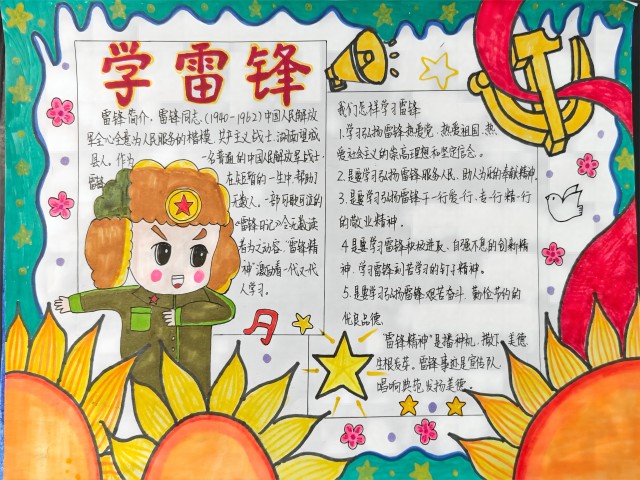 学雷锋
雷锋简介,雷锋同志,(1940-1962)中国人民解放
军全心全意为人民服务的楷模,共产主义战士,湖南望城
县人。作为一名普通的中国人民解放军战士,
雷锋在短暂的一生中帮助了
无数人,一部可歌可泣的
《雷锋日记》令无数读
者为之动容。"雷锋精
神"激励着一代又一代
人学习。
月
我们怎样学习雷锋
1.学习弘扬雷锋热爱党、热爱祖国、热
爱社会主义的崇高理想和坚定信念。
2.是要学习弘扬雷锋服务人民、助人为乐的奉献精神。
3.是要学习弘扬雷锋干一行爱一行、专一行精一行
的敬业精神。
4.是要学习雷锋积极进取、自强不息的创新精
神,学习雷锋刻苦学习的钉子精神。
5.是要学习弘扬雷锋艰苦奋斗、勤俭节约的
优良品德。
"雷锋精神"是播种机,撒下美德
生根发芽。雷锋事迹是宣传队
唱响典范,发扬美德。